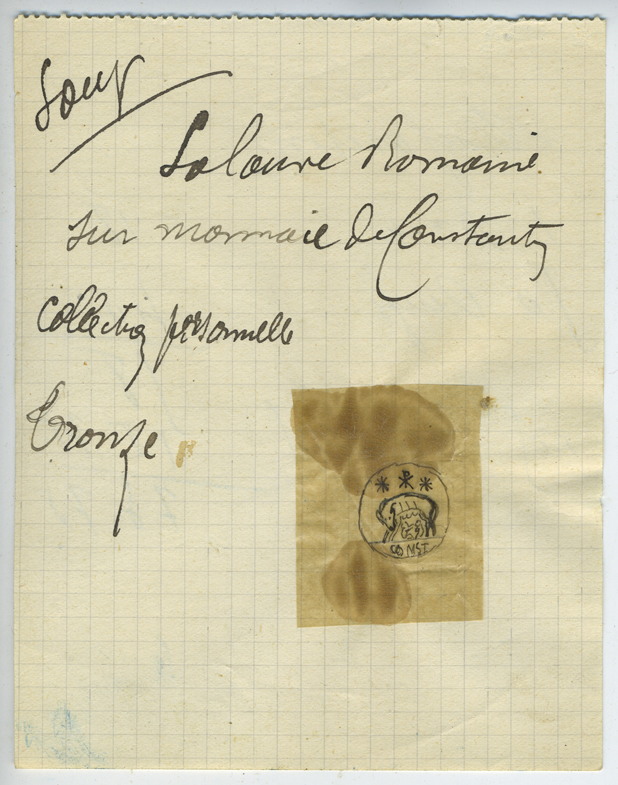 La louve Romaine
sur monnaie de Constantin
collection personnelle
bronze
* ☧ *
CONST